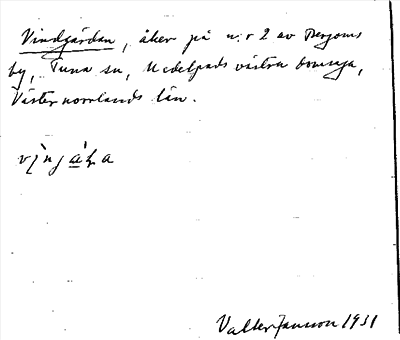 Vindgårdan, åker på n:r 2 av Bergoms
by, Tuna sn, Medelpads västra domsaga,
Västernorrlands län.
Valter Jansson 1931